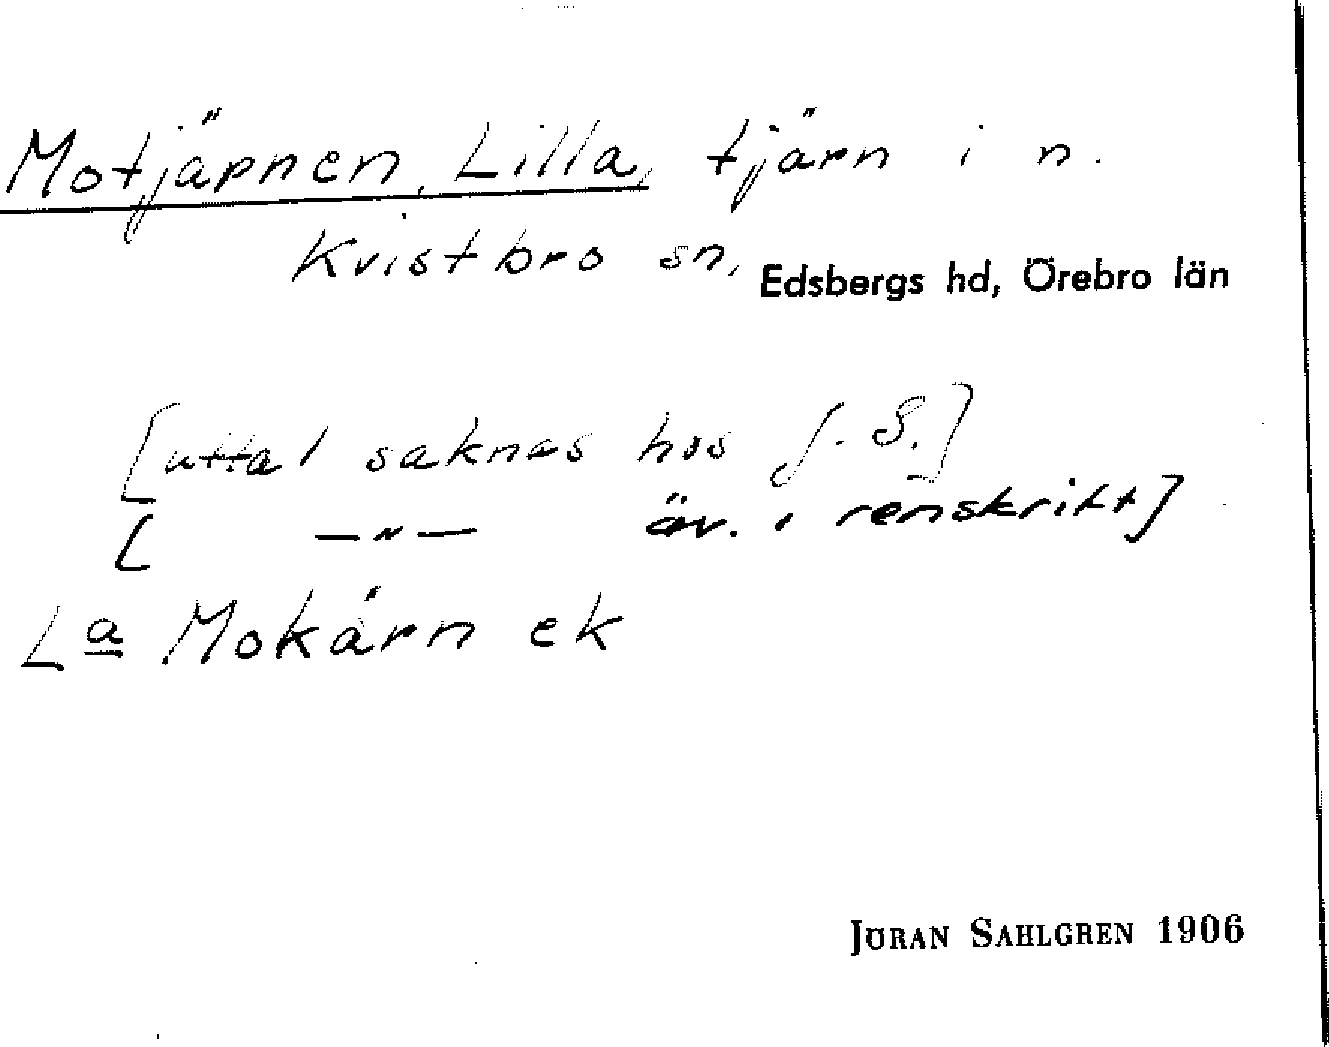 Motjärnen, Lilla, tjärn i n.
Kvistbro sn, Edsbergs hd, Örebro län
[uttal saknas hos J. S.]
[ —"— äv. i renskrift]
La Mokärn ek
JÖRAN SAHLGREN 1906